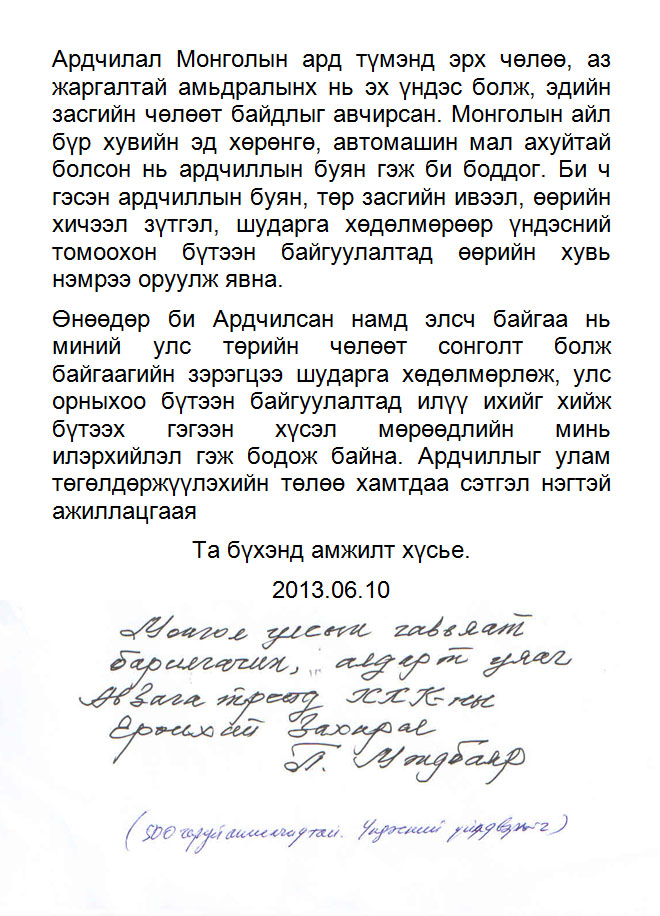 Ардчилал Монголын ард түмэнд эрх чөлөө, аз
жаргалтай амьдралынх нь эх үндэс болж, эдийн
засгийн чөлөөт байдлыг авчирсан. Монголын айл
бүр хувийн эд хөрөнгө, автомашин мал ахуйтай
болсон нь ардчиллын буян гэж би боддог. Би ч
гэсэн ардчиллын буян, төр засгийн ивээл, өөрийн
хичээл зүтгэл, шударга хөдөлмөрөөр үндэсний
томоохон бүтээн байгуулалтад өөрийн хувь
нэмрээ оруулж явна.
Өнөөдөр би Ардчилсан намд элсч байгаа нь
миний улс төрийн чөлөөт сонголт болж
байгаагийн зэрэгцээ шударга хөдөлмөрлөж, улс
орныхоо бүтээн байгуулалтад илүү ихийг хийж
бүтээх гэгээн хүсэл мөрөөдлийн минь
илэрхийлэл гэж бодож байна. Ардчиллыг улам
төгөлдөржүүлэхийн төлөө хамтдаа сэтгэл нэгтэй
ажиллацгаая
Та бүхэнд амжилт хүсье.
2013.06.10
Монгол улсын гавьяат
барилгачин, алдарт уяач
ХХК-ны
Ерөнхий Захирал
(500 Үндэсний үйлдвэрийг)